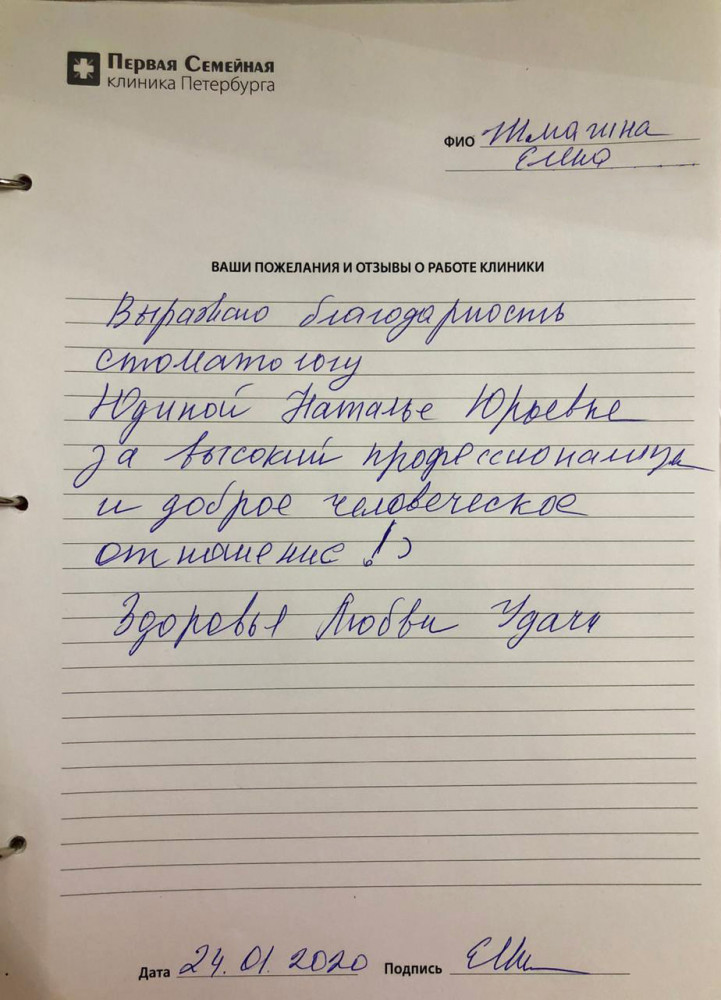 Первая Семейная
клиника Петербурга
ФИО Жмагина
Елена
ВАШИ ПОЖЕЛАНИЯ И ОТЗЫВЫ О РАБОТЕ КЛИНИКИ
Выражаю благодарность
стоматологу
Юдиной Наталье Юрьевне
за высокий профессионализм
и доброе человеческое
отношение!)
Здоровья Любви Удачи
Дата 24.01.2020 Подпись